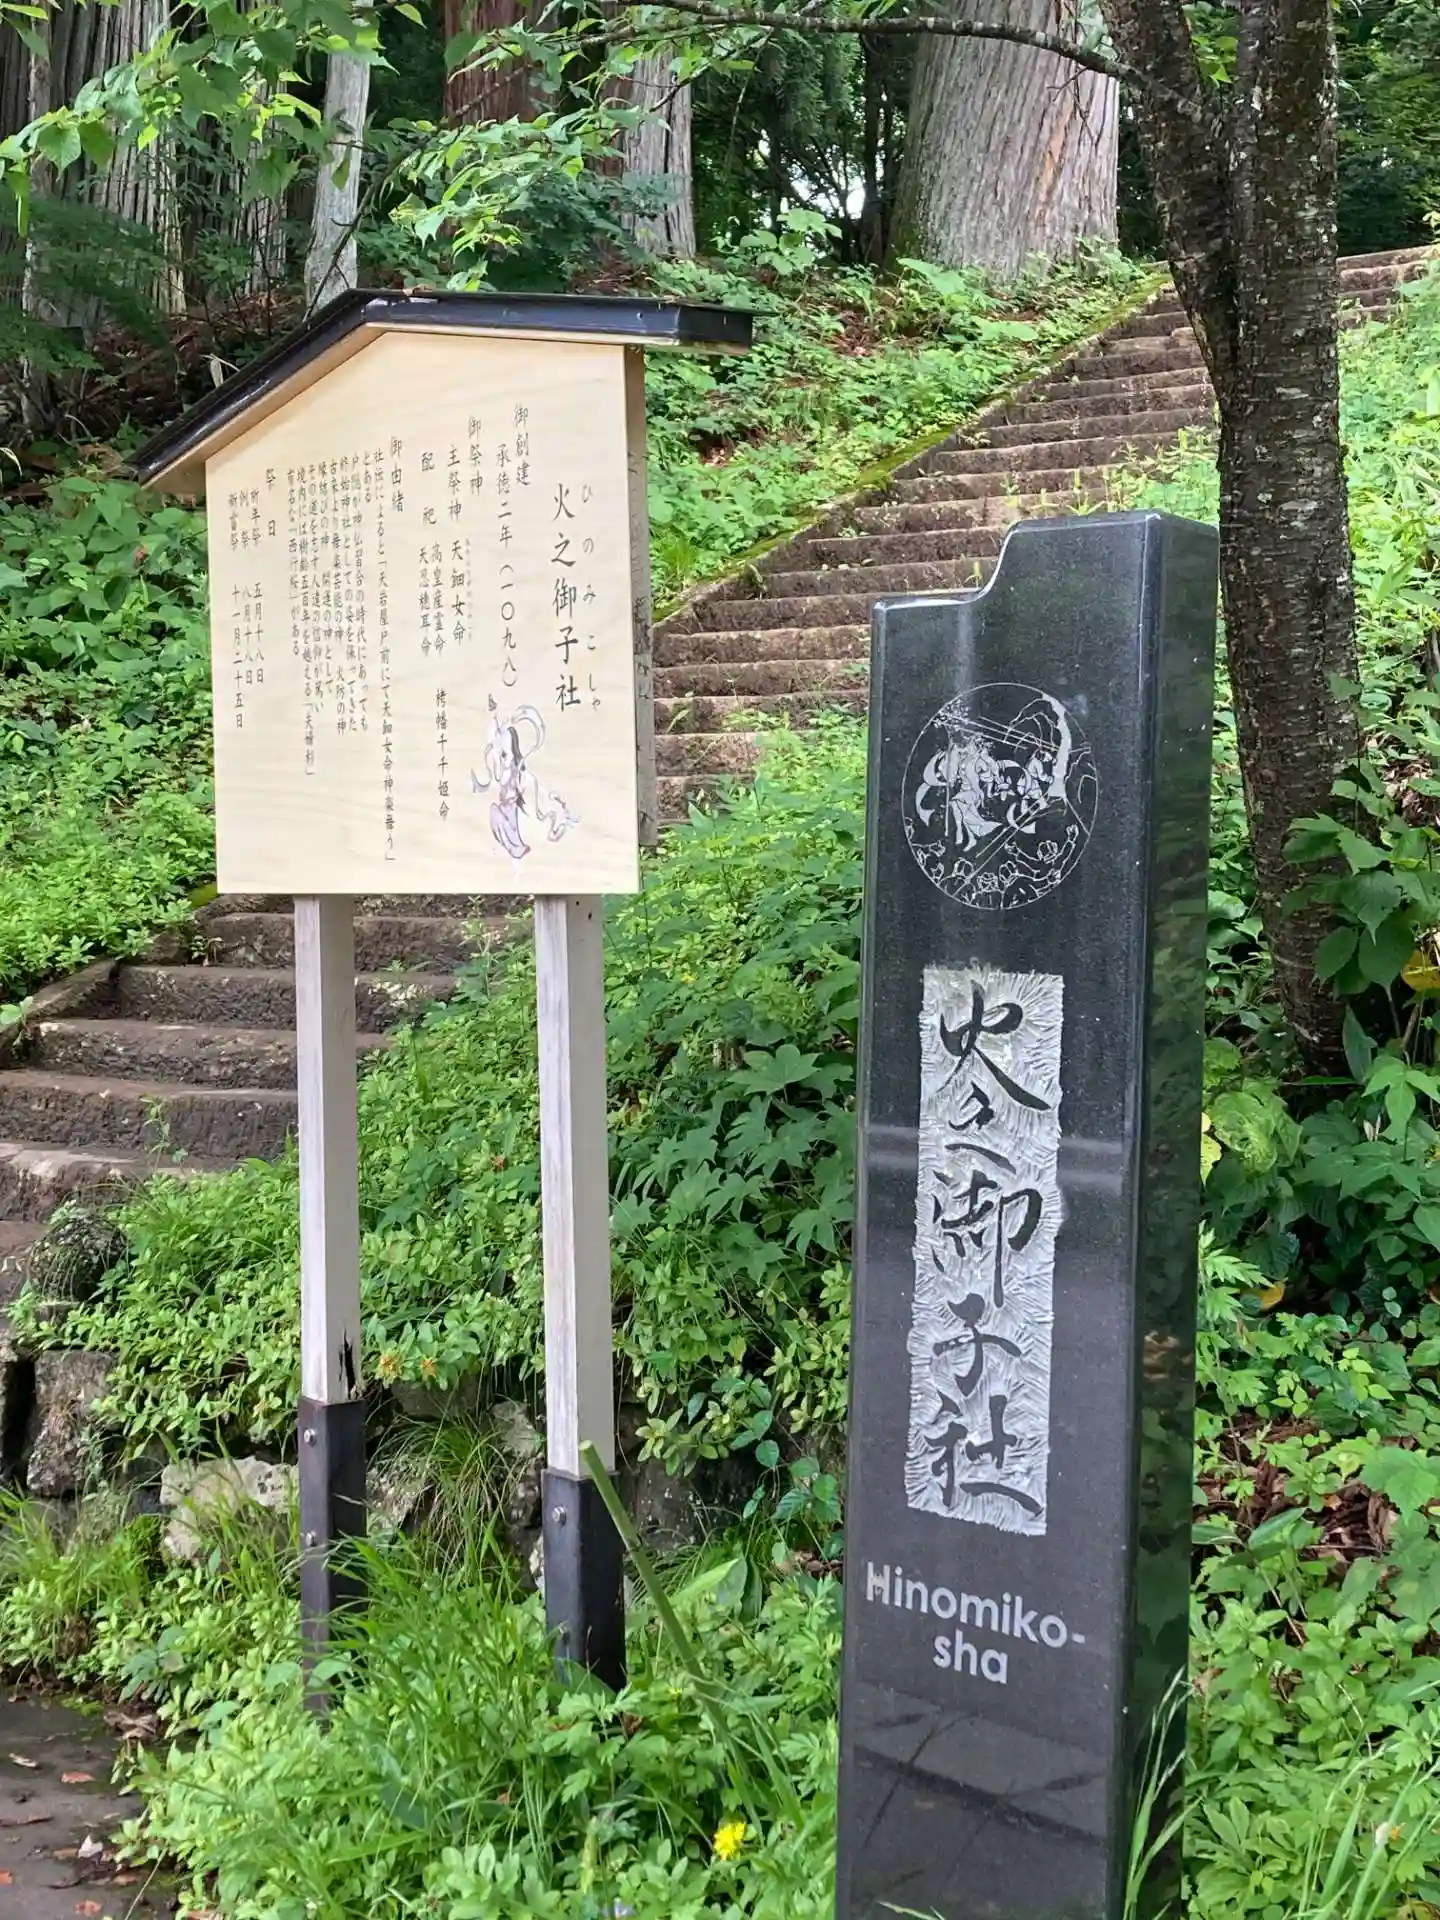 火之御子社
ひのみこしゃ
御創建
承徳二年(一〇九八)
御祭神
主祭神 天鈿女命
配祀 高皇産霊命 栲幡千千姫命
天忍穂耳命
御由緒
社伝によると「天岩屋戸前にて天鈿女命神楽舞う」
とある
戸隠が神仏習合の時代にあっても
終始神社としての姿を保ってきた
古来より舞楽芸能の神 火防の神
縁結びの神 開運の神として
その道を志す人達の信仰が篤い
境内には樹齢五百年を越える「夫婦杉」
有名な「西行桜」がある
祭日
祈年祭 五月十八日
例祭 八月十八日
新嘗祭 十一月二十五日
火之御子社
Hinomiko-
sha